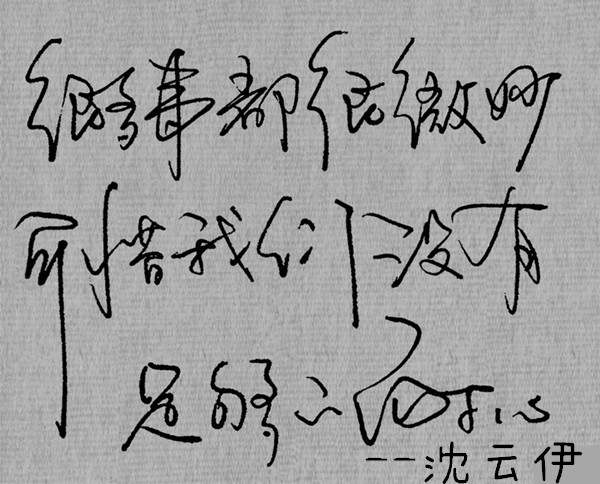 很多事都很微妙
可惜我们没有
足够的耐心
--沈云伊